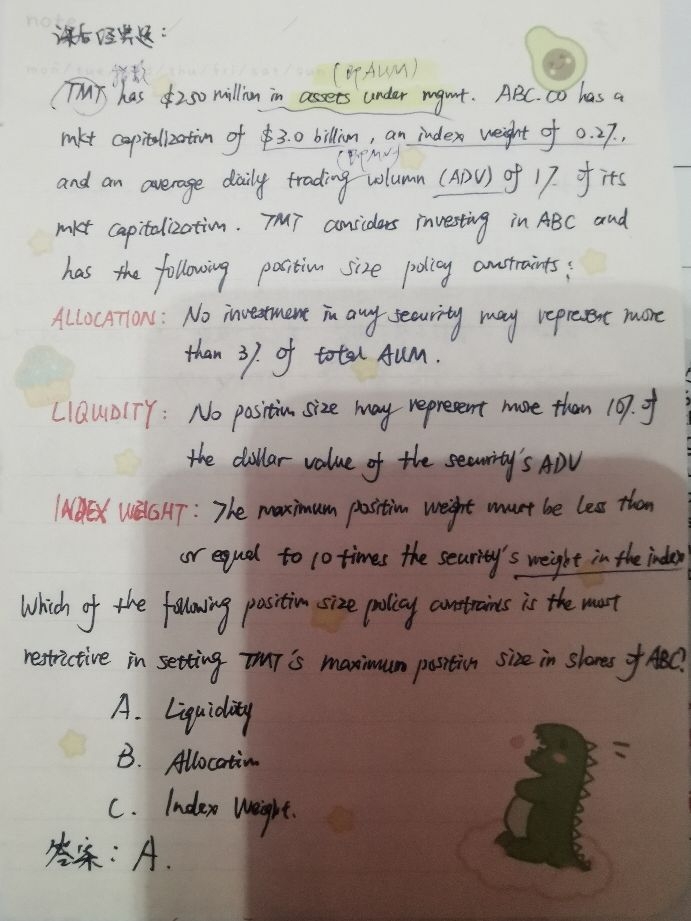 note
课后经典题:
mon/tue/wed/thu/fri/sat/sun
(即AUM)
TMT has $250 million in assets under mgmt. ABC.CO has a
mkt capitalization of $3.0 billion, an index weight of 0.2%,
and an average daily trading volumn (ADV) of 1% of its
mkt capitalization. TMT considers investing in ABC and
has the following position size policy constraints:
ALLOCATION: No investment in any security may represent more
than 3% of total AUM.
LIQUIDITY: No position size may represent more than 10% of
the dollar value of the security's ADV
INDEX WEIGHT: The maximum position weight must be less than
or equal to 10 times the security's weight in the index
Which of the following position size policy constraints is the most
restrictive in setting TMT's maximum position size in shares of ABC?
A. Liquidity
B. Allocation
C. Index Weight.
答案: A.